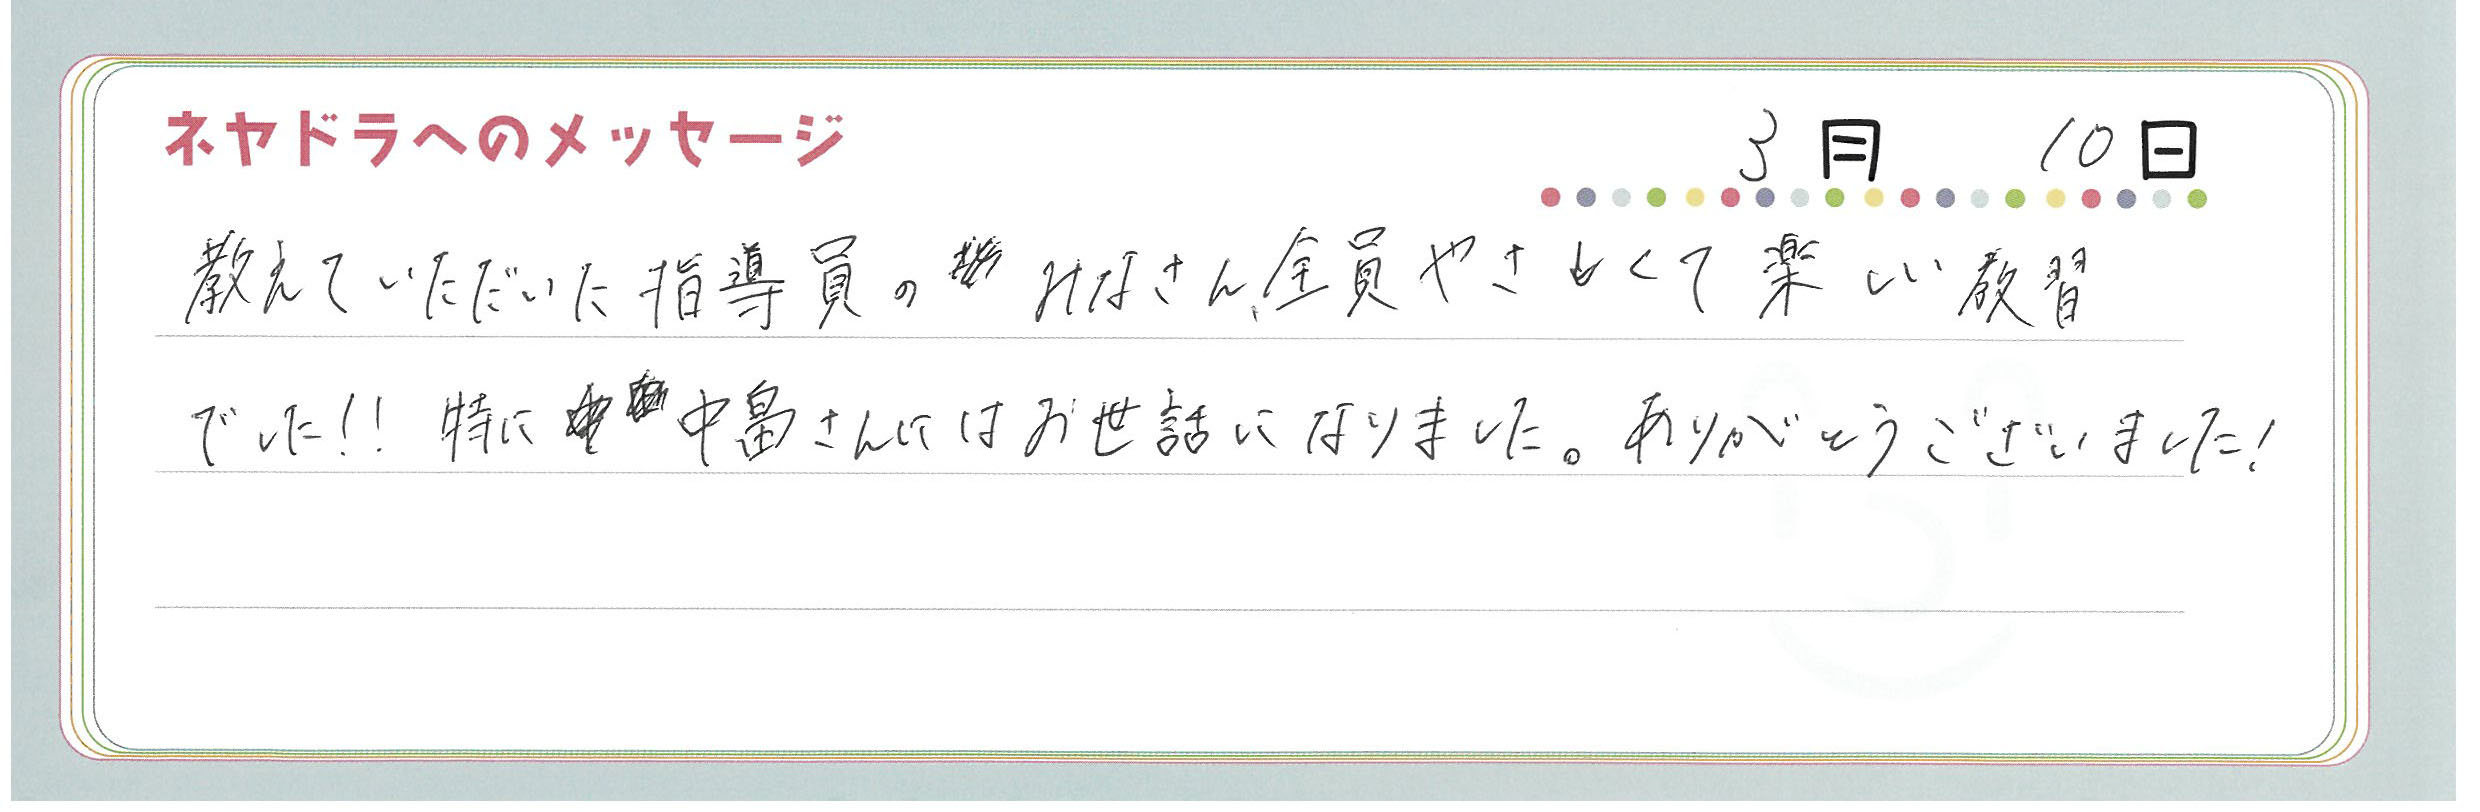 ネヤドラへのメッセージ
3月 10日
教えていただいた指導員のみなさん、全員やさしくて楽しい教習
でした!! 特に中畠さんにはお世話になりました。ありがとうございました!